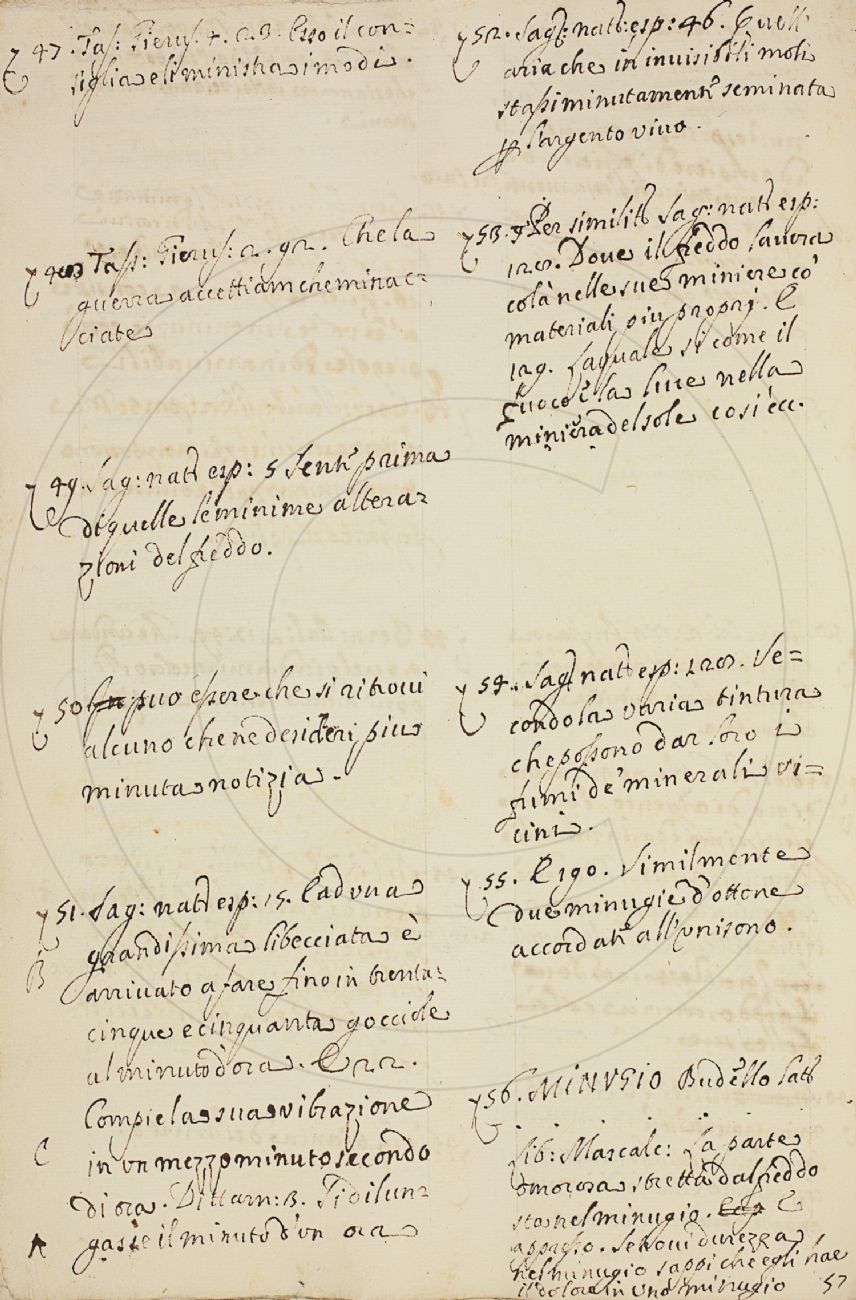 47. Tass: Gierus: 4. 23. Esso il con=
siglia e li ministra i modi.
48 Tass: Gierus: 2. 92. Che la
guerra accettiam che minac=
ciate
49. Sag: nat: esp: 5 Sent: prima
di quelle le minime altera=
zioni del freddo.
50 può essere che si ritrovi
alcuno che ne desideri piu
minuta notizia.
51. Sag: nat: esp: 15. E ad una
grandissima libecciata è
B arrivato a fare fino in trenta=
cinque e cinquanta gocciole
al minuto d'ora. E 22.
Compie la sua vibrazione
C in un mezzo minuto secondo
di ora. Dittam: 3. Gi di lun=
A gasse il minuto d'un ora
52. Sag: nat: esp: 46. Quell'
aria che in invisibili moli
stassi minutament: seminata
p l'argento vivo.
53. Per similit: Sag: nat: esp:
128. Dove il freddo lavora
colà nelle sue miniere có
materiali piu proprj. E
129. la quale si come il
fuoco è la luce nella
miniera del sole cosi ec.
54. Sag: nat: esp: 128. Se=
condo la varia tintura
che possono dar loro i
fumi de' minerali vi=
cini.
55. E 190. Similmente
due minugie d'ottone
accordat: all'unisono.
56. MINUGIO Budello Lat:
Lib: Mascalc: la parte
omorosa stretta dal freddo
sta nel minugio. E
appresso. Se trovi durezza
nel minugio sappi che egli hae
il dolore in uno minugio 57